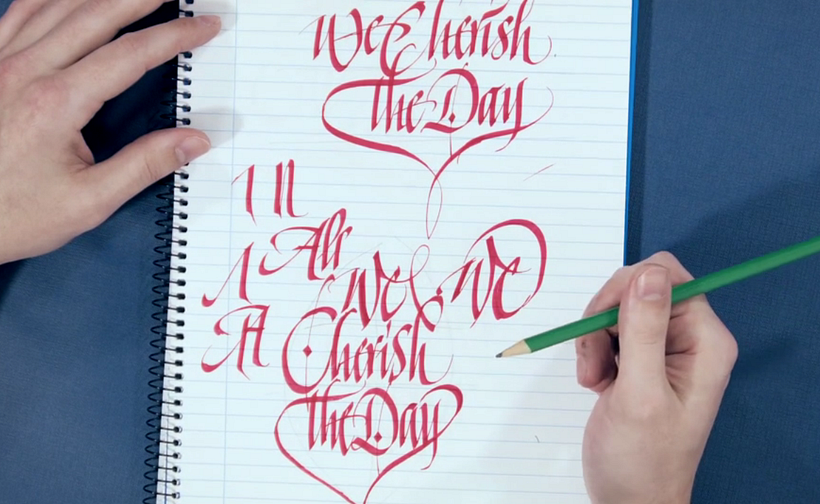 We Cherish
the Day
All
We We
A
Cherish
the Day